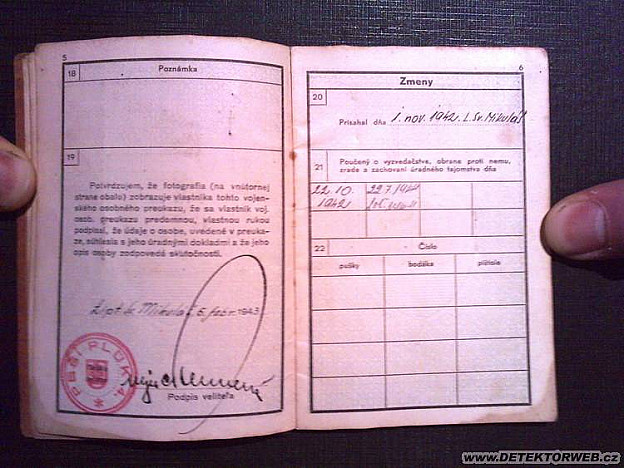 5
18
Poznámka
19
Potvrdzujem, že fotografia (na vnútornej
strane obalu) zobrazuje vlastníka tohto vojen-
ského osobného preukazu, že sa vlastník voj.
osob. preukazu predomnou, vlastnou rukou
podpísal, že údaje o osobe, uvedené v preuka-
ze, súhlasia s jeho úradnými dokladmi a že jeho
opis osoby zodpovedá skutočnosti.
Lipt. Sv. Mikuláš, 5. febr. 1943
PEŠÍ PLUK 4.
Podpis veliteľa
6
Zmeny
20
Prisahal dňa 1. nov. 1942. L. Sv. Mikuláš
21
Poučený o vyzvedačstve, obrane proti nemu,
zrade a zachovaní úradného tajomstva dňa
22. 10.
1942
22
Číslo
pušky bodáka pištole
WWW.DETEKTORWEB.CZ